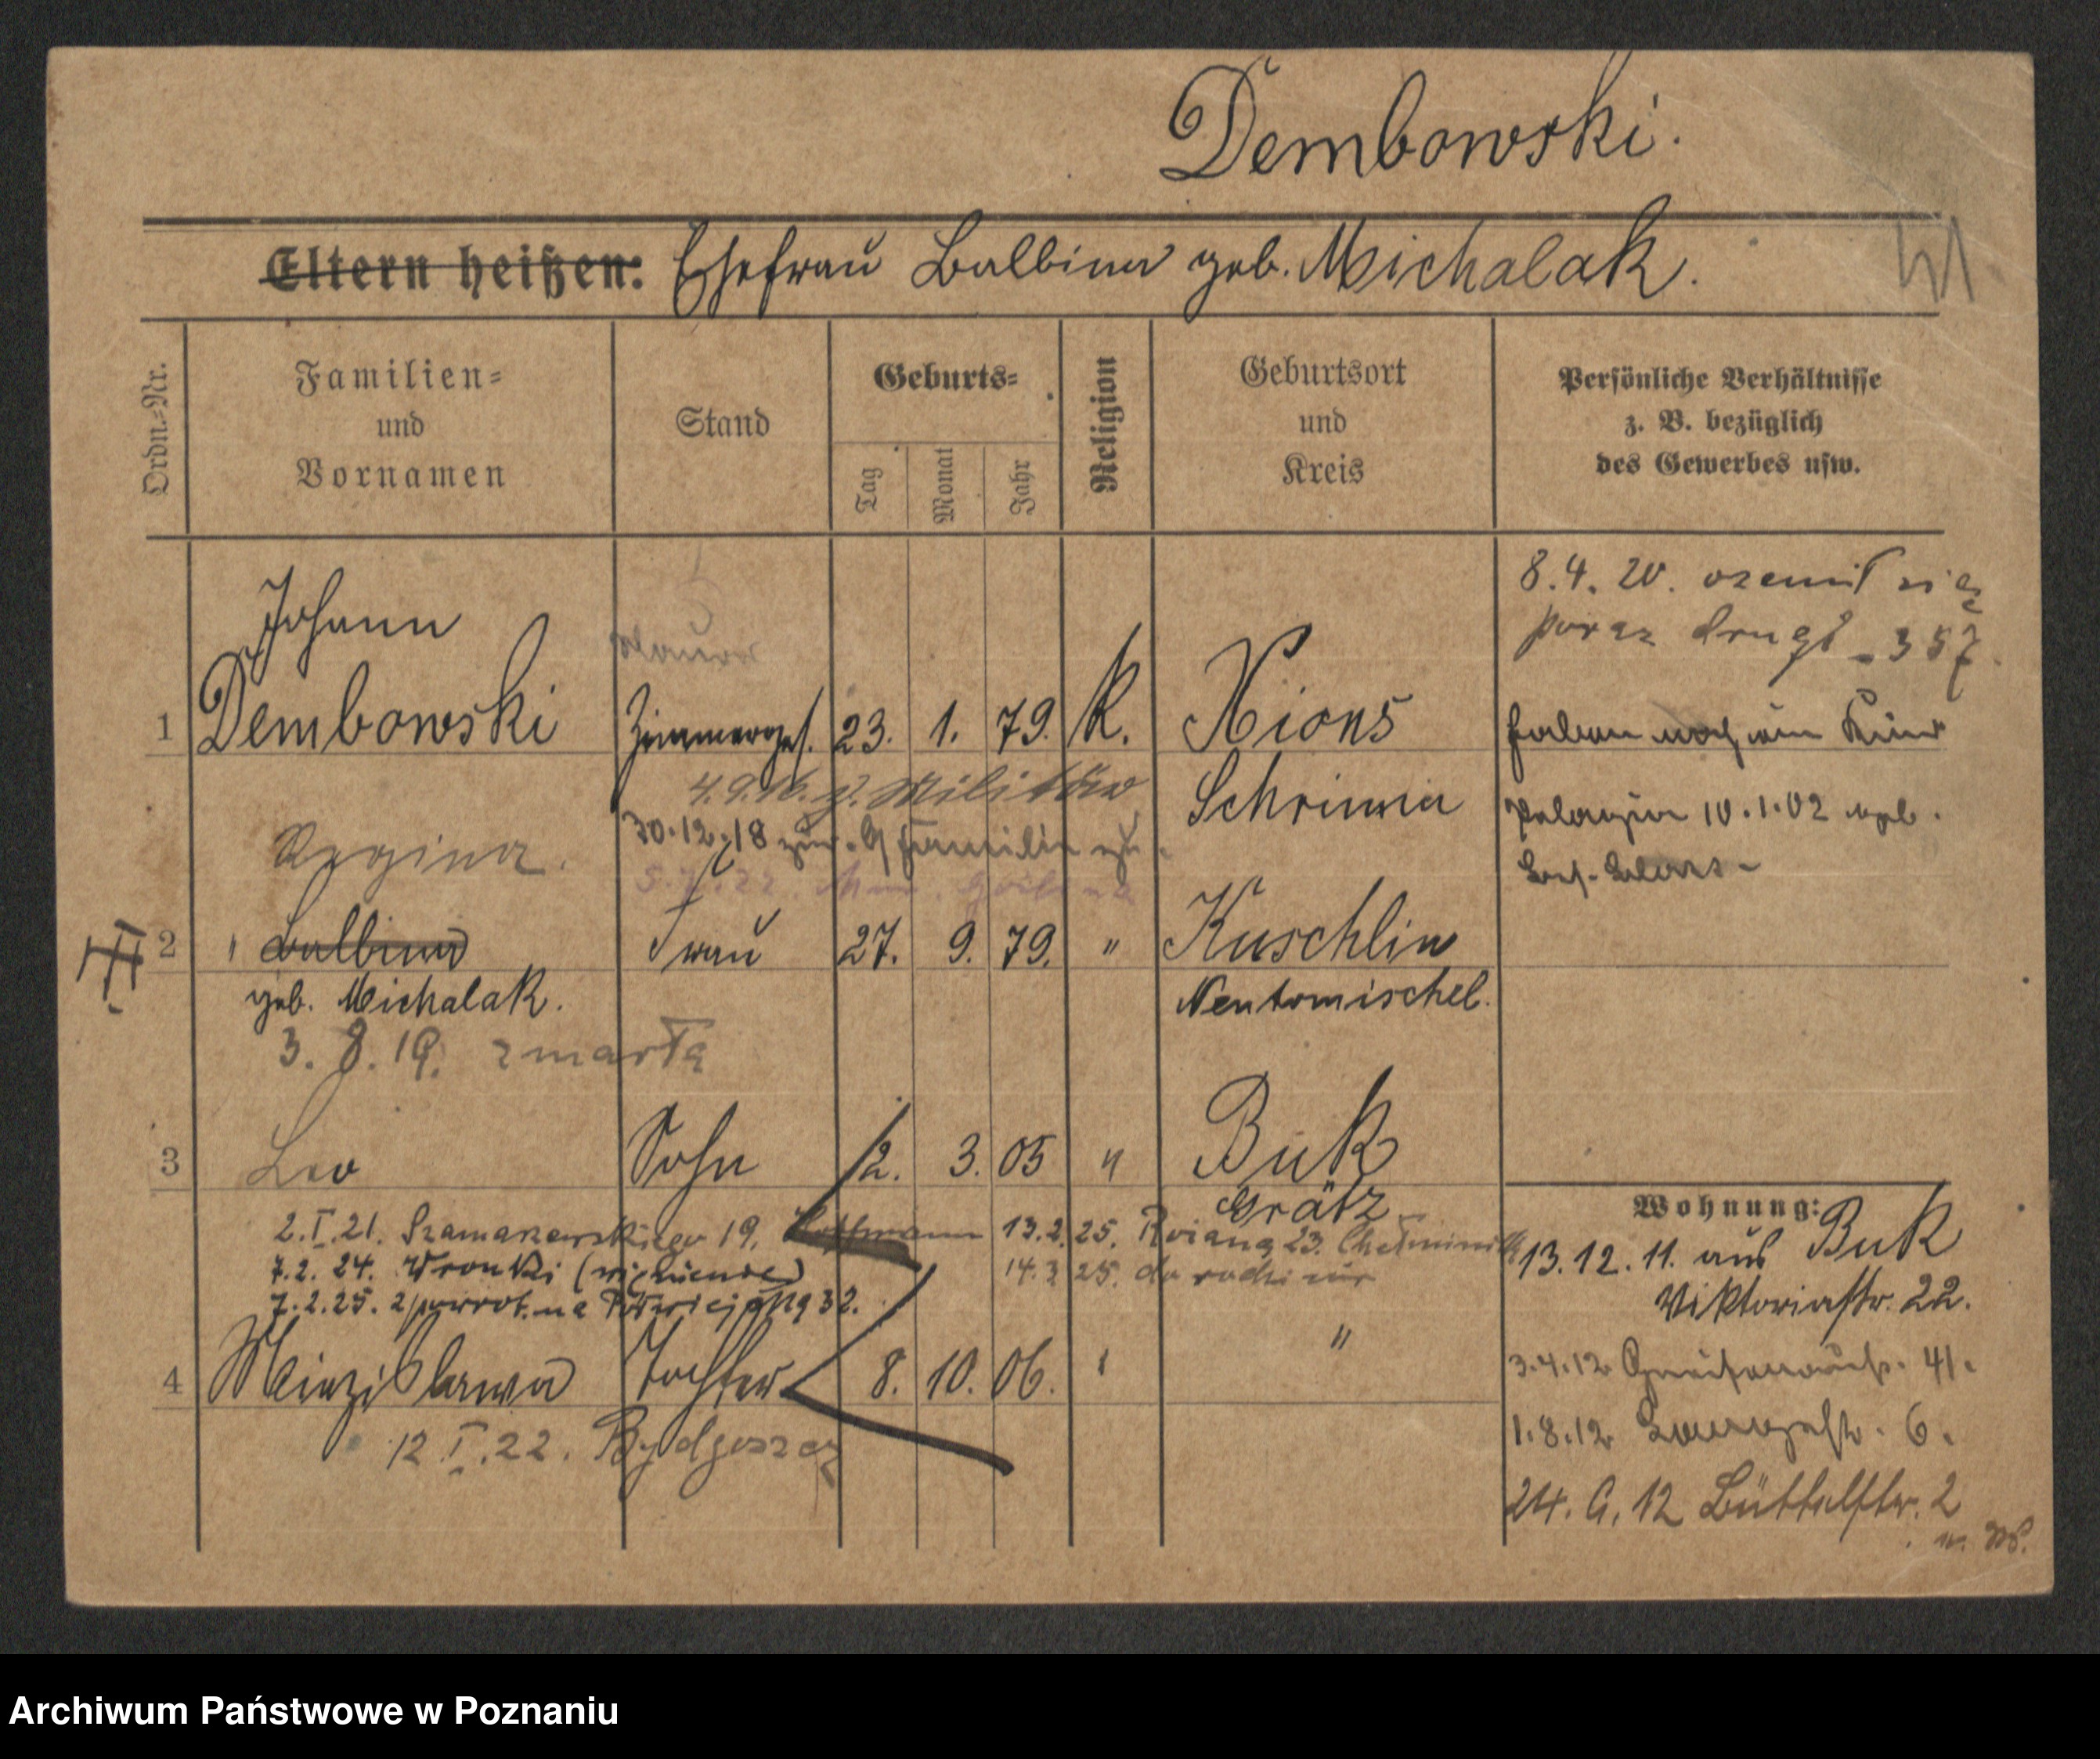 Dembowski.
Eltern heißen: Ehefrau Balbina geb. Michalak.
Ordn.-Nr.
Familien-
und
Vornamen
Stand
Geburts-
Tag
Monat
Jahr
Religion
Geburtsort
und
Kreis
Persönliche Verhältnisse
z. B. bezüglich
des Gewerbes usw.
8.4.20. ozenił się
poraz drugi - 357
Johann
1 Dembowski Zimmerges. 23. 1. 79. K. Xions
Schrimm
haben noch ein Kind
Pelagia 10.1.02 geb.
4.9.16. z. Militär
30.12.18 zur Familie
Regina.
2 " Balbina Frau 27. 9. 79. " Kuschlin
geb. Michalak. Neutomischel.
3. 8. 19. zmarła
3 Leo Sohn 12. 3. 05 " Buk
Grätz
2.I.21. Szamarzewskiego 19. 13.2.25.
7.2.24. Wronki (więzienie) 14.3.25. do rodziny
7.2.25. z powrot. na 32.
4 Miezislawa Tochter 8. 10. 06. " "
12 I. 22. Bydgoszcz
Wohnung:
13.12.11. aus Buk
Viktoriastr. 22.
3.4.12 Gneisenaustr. 41.
1.8.12 6.
24. 9. 12 2
Archiwum Państwowe w Poznaniu